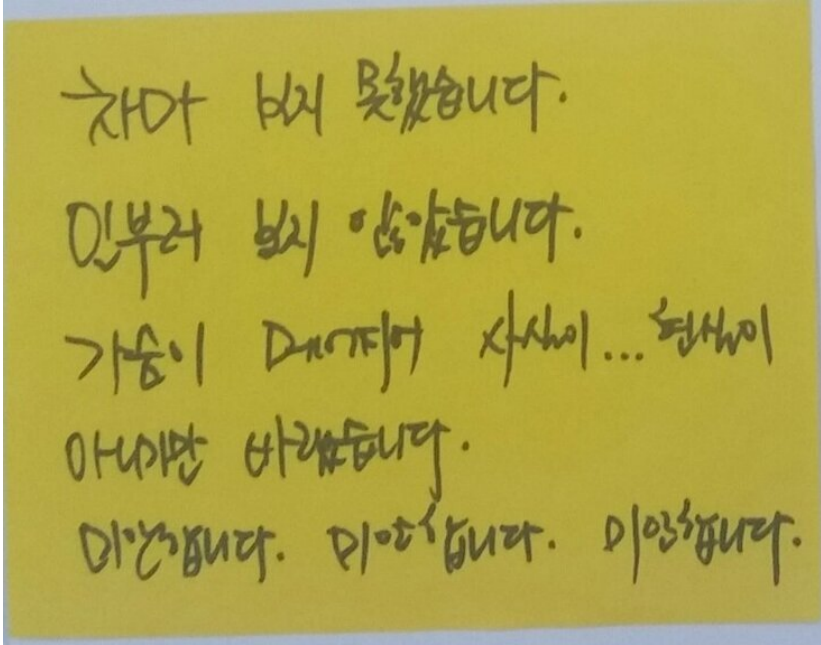 차마 보지 못했습니다.
일부러 보지 않았습니다.
가슴이 미어지어 사실이... 현실이
아니기만 바랬습니다.
미안합니다. 미안합니다. 미안합니다.